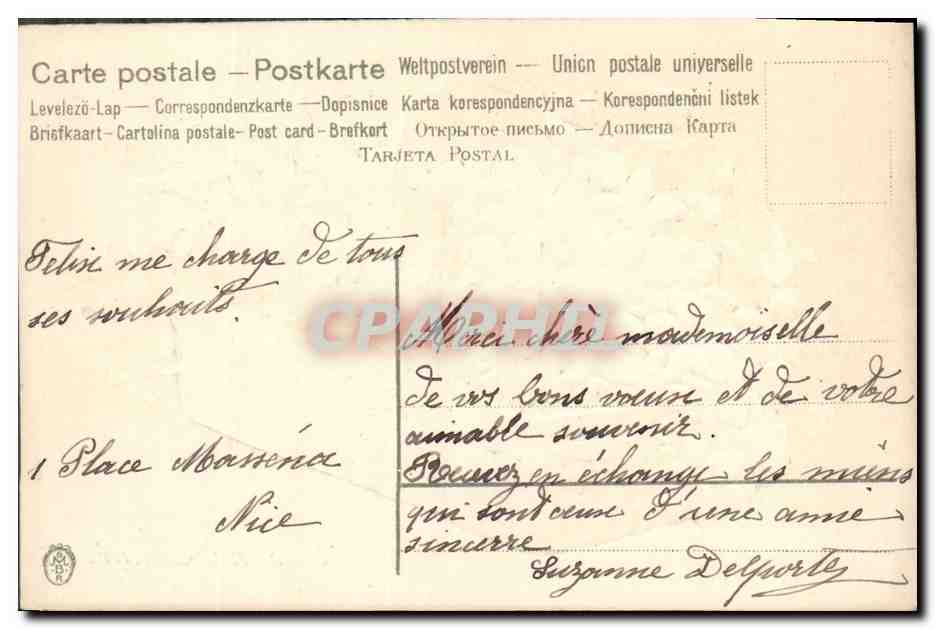 Carte postale — Postkarte Weltpostverein — Union postale universelle
Levelező-Lap — Correspondenzkarte — Dopisnice Karta korespondencyjna — Korespondenční listek
Briefkaart - Cartolina postale - Post card - Brefkort Открытое письмо — Дописна Карта
TARJETA POSTAL
Felix me charge de tous
ses souhaits.
1 Place Masséna
Nice
CPAPHD
Merci chère mademoiselle
de vos bons voeux et de votre
aimable souvenir.
Recevez en échange les miens
qui sont ceux d'une amie
sincerre
Suzanne Delporte